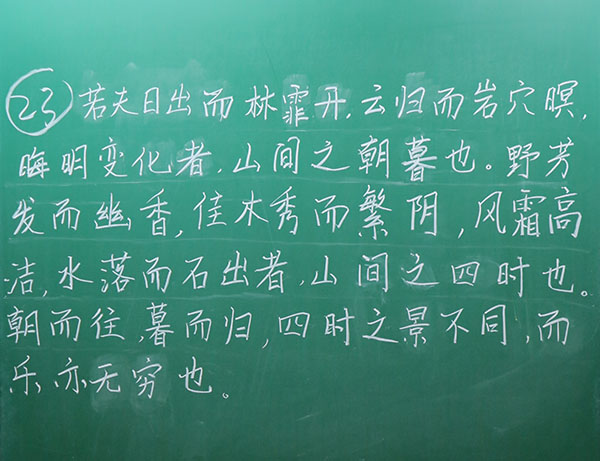 23 若夫日出而林霏开,云归而岩穴暝,
晦明变化者,山间之朝暮也。野芳
发而幽香,佳木秀而繁阴,风霜高
洁,水落而石出者,山间之四时也。
朝而往,暮而归,四时之景不同,而
乐亦无穷也。